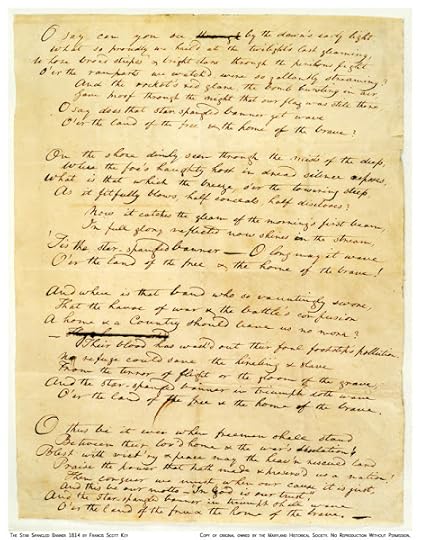 O say can you see through by the dawn's early light
What so proudly we hail'd at the twilight's last gleaming,
Whose broad stripes & bright stars through the perilous fight
O'er the ramparts we watch'd were so gallantly streaming?
And the rocket's red glare, the bomb bursting in air
Gave proof through the night that our flag was still there
O say does that star spangled banner yet wave
O'er the land of the free & the home of the brave?
On the shore dimly seen through the mists of the deep,
Where the foe's haughty host in dread silence reposes,
What is that which the breeze, o'er the towering steep,
As it fitfully blows, half conceals, half discloses?
Now it catches the gleam of the morning's first beam,
In full glory reflected now shines in the stream,
'Tis the star-spangled banner — O long may it wave
O'er the land of the free & the home of the brave!
And where is that band who so vauntingly swore,
That the havoc of war & the battle's confusion
A home & a Country should leave us no more?
— Their blood has wash'd out their foul footstep's pollution.
No refuge could save the hireling & slave
From the terror of flight or the gloom of the grave,
And the star-spangled banner in triumph doth wave
O'er the land of the free & the home of the brave.
O thus be it ever when freemen shall stand
Between their lov'd home & the war's desolation!
Blest with vict'ry & peace may the heav'n rescued land
Praise the power that hath made & preserv'd us a nation!
Then conquer we must, when our cause it is just,
And this be our motto — "In God is our trust,"
And the star-spangled banner in triumph shall wave
O'er the land of the free & the home of the brave. —
The Star Spangled Banner 1814 by Francis Scott Key
Copy of original owned by the Maryland Historical Society. No Reproduction Without Permission.